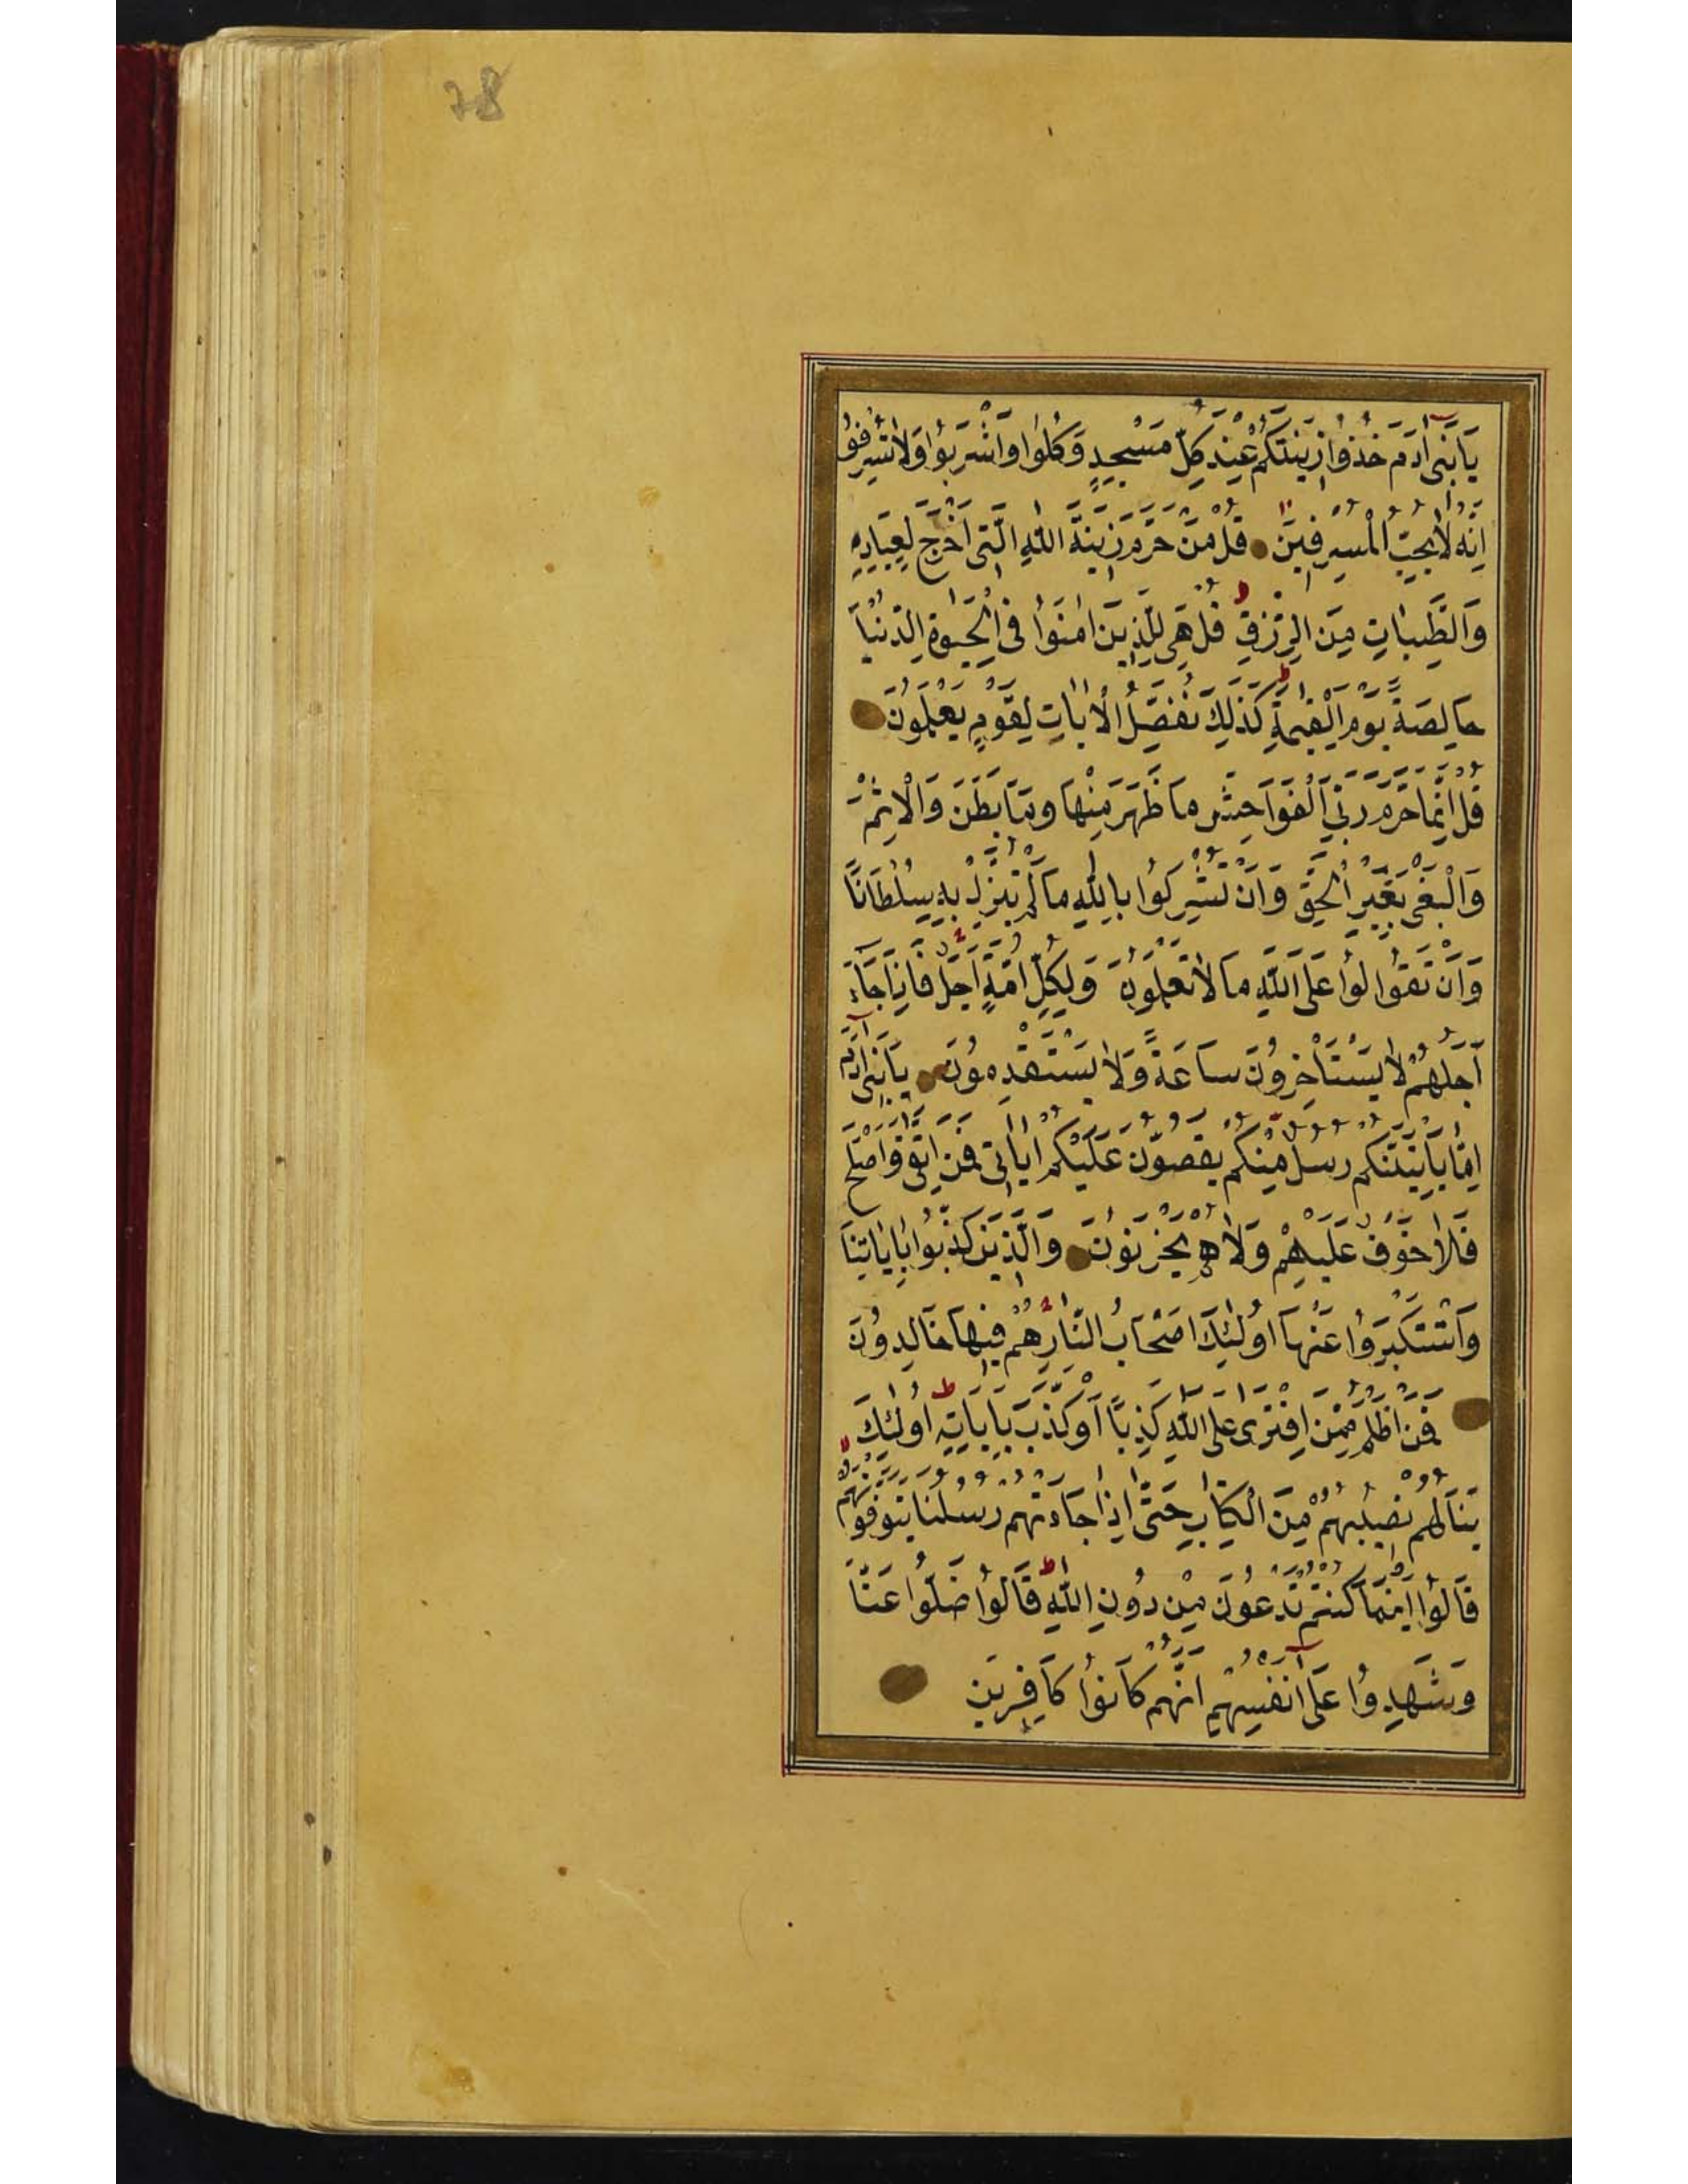 78
يَا بَنِى اٰدَمَ خُذُوا زِينَتَكُمْ عِنْدَ كُلِّ مَسْجِدٍ وَكُلُوا وَاشْرَبُوا وَلَا تُسْرِفُوا
اِنَّهُ لَا يُحِبُّ الْمُسْرِفِينَ قُلْ مَنْ حَرَّمَ زِينَةَ اللّٰهِ الَّتِى اَخْرَجَ لِعِبَادِهِ
وَالطَّيِّبَاتِ مِنَ الرِّزْقِ ط قُلْ هِىَ لِلَّذِينَ اٰمَنُوا فِى الْحَيٰوةِ الدُّنْيَا
خَالِصَةً يَوْمَ الْقِيٰمَةِ ط كَذٰلِكَ نُفَصِّلُ الْاٰيَاتِ لِقَوْمٍ يَعْلَمُونَ
قُلْ اِنَّمَا حَرَّمَ رَبِّىَ الْفَوَاحِشَ مَا ظَهَرَ مِنْهَا وَمَا بَطَنَ وَالْاِثْمَ
وَالْبَغْىَ بِغَيْرِ الْحَقِّ وَاَنْ تُشْرِكُوا بِاللّٰهِ مَا لَمْ يُنَزِّلْ بِهِ سُلْطَانًا
وَاَنْ تَقُوالُوا عَلَى اللّٰهِ مَا لَا تَعْلَمُونَ وَلِكُلِّ اُمَّةٍ اَجَلٌ فَاِذَا جَاءَ
اَجَلُهُمْ لَا يَسْتَاْخِرُونَ سَاعَةً وَلَا يَسْتَقْدِمُونَ يَا بَنِى اٰدَمَ
اِمَّا يَاْتِيَنَّكُمْ رُسُلٌ مِنْكُمْ يَقُصُّونَ عَلَيْكُمْ اٰيَاتِى فَمَنِ اتَّقٰى وَاَصْلَحَ
فَلَا خَوْفٌ عَلَيْهِمْ وَلَا هُمْ يَحْزَنُونَ وَالَّذِينَ كَذَّبُوا بِاٰيَاتِنَا
وَاسْتَكْبَرُوا عَنْهَا اُولٰئِكَ اَصْحَابُ النَّارِ هُمْ فِيهَا خَالِدُونَ
فَمَنْ اَظْلَمُ مِمَّنِ افْتَرٰى عَلَى اللّٰهِ كَذِبًا اَوْ كَذَّبَ بِاٰيَاتِهِ ط اُولٰئِكَ
يَنَالُهُمْ نَصِيبُهُمْ مِنَ الْكِتَابِ حَتّٰى اِذَا جَاءَتْهُمْ رُسُلُنَا يَتَوَفَّوْنَهُمْ
قَالُوا اَيْنَمَا كُنْتُمْ تَدْعُونَ مِنْ دُونِ اللّٰهِ ط قَالُوا ضَلُّوا عَنَّا
وَشَهِدُوا عَلٰى اَنْفُسِهِمْ اَنَّهُمْ كَانُوا كَافِرِينَ